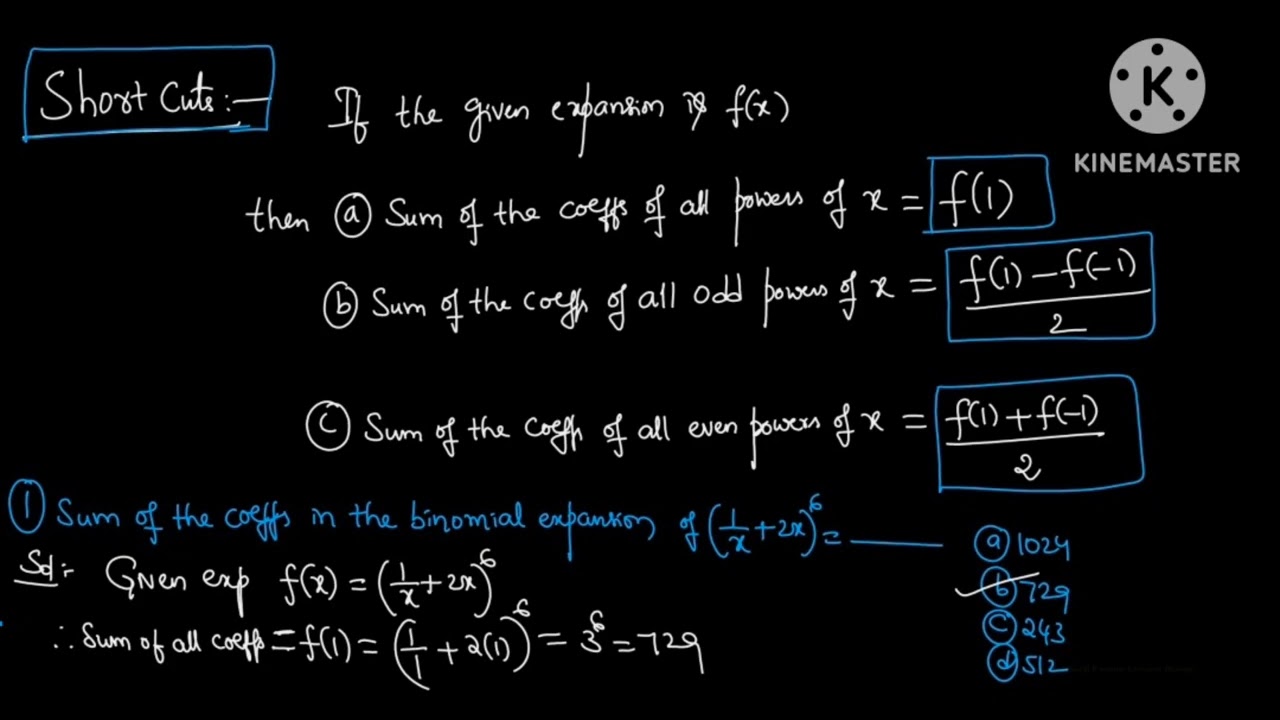 Short Cuts:-
If the given expansion is f(x)
K
KINEMASTER
then (a) Sum of the coeffs of all powers of x = f(1)
(b) Sum of the coeffs of all odd powers of x = (f(1) - f(-1))/2
(c) Sum of the coeffs of all even powers of x = (f(1) + f(-1))/2
(1) Sum of the coeffs in the binomial expansion of (1/x + 2x)^6 = ____
(a) 1024
Sol:- Given exp f(x) = (1/x + 2x)^6
(b) 729
∴ Sum of all coeffs = f(1) = (1/1 + 2(1))^6 = 3^6 = 729
(c) 243
(d) 512